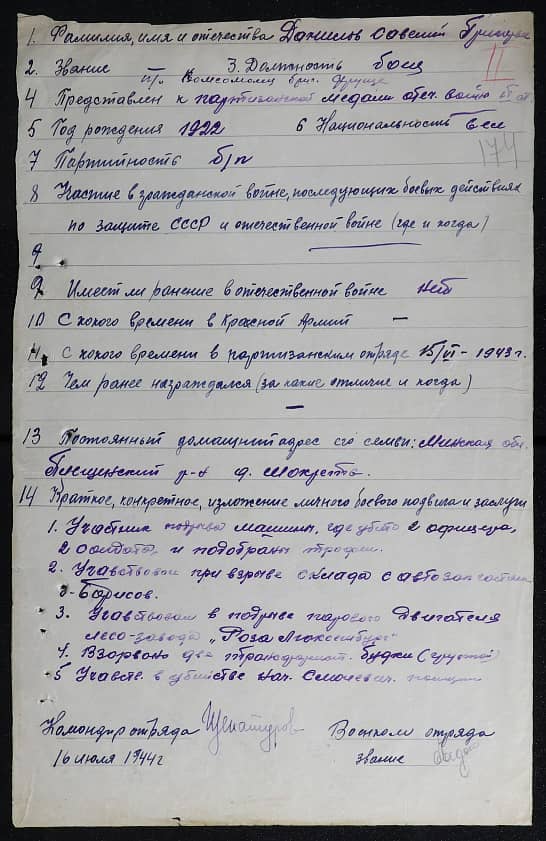 1. Фамилия, имя и отечества Данилов Савелий
II
2. Звание 3. Должность боец
п/о Комсомолец бриг.
4 Представлен к партизанской медали отеч. войны
5 Год рождения 1922 6 Национальность бел
174
7 Партийность б/п
8 Участие в гражданской войне, последующих боевых действиях
по защите СССР и отечественной войне (где и когда)
9
9 Имест ли ранение в отечественной войне нет
10 С какого времени в Красной Армии —
11 С какого времени в партизанским отряде 15/VI – 1943 г.
12 Чем ранее награждался (за какие отличие и когда)
—
13 Постоянный домашний адрес его семьи: Минская обл.
р-н д.
14 Краткое, конкретное, изложение личного боевого подвига и заслуги
1. Участник подрыва машины, где убито 2 офицера,
2 солдата и подобраны трофеи.
2. Учавствовал при взрыве склада с автозапчастями
г. Борисов.
3. Учавствовал в подрыве парового двигателя
лесо-завода „Роза Люксембург"
4. Взорвано две будки
5 Участв. в убийстве нач. полиции
Командир отряда Военком отряда
16 июля 1944 г звание